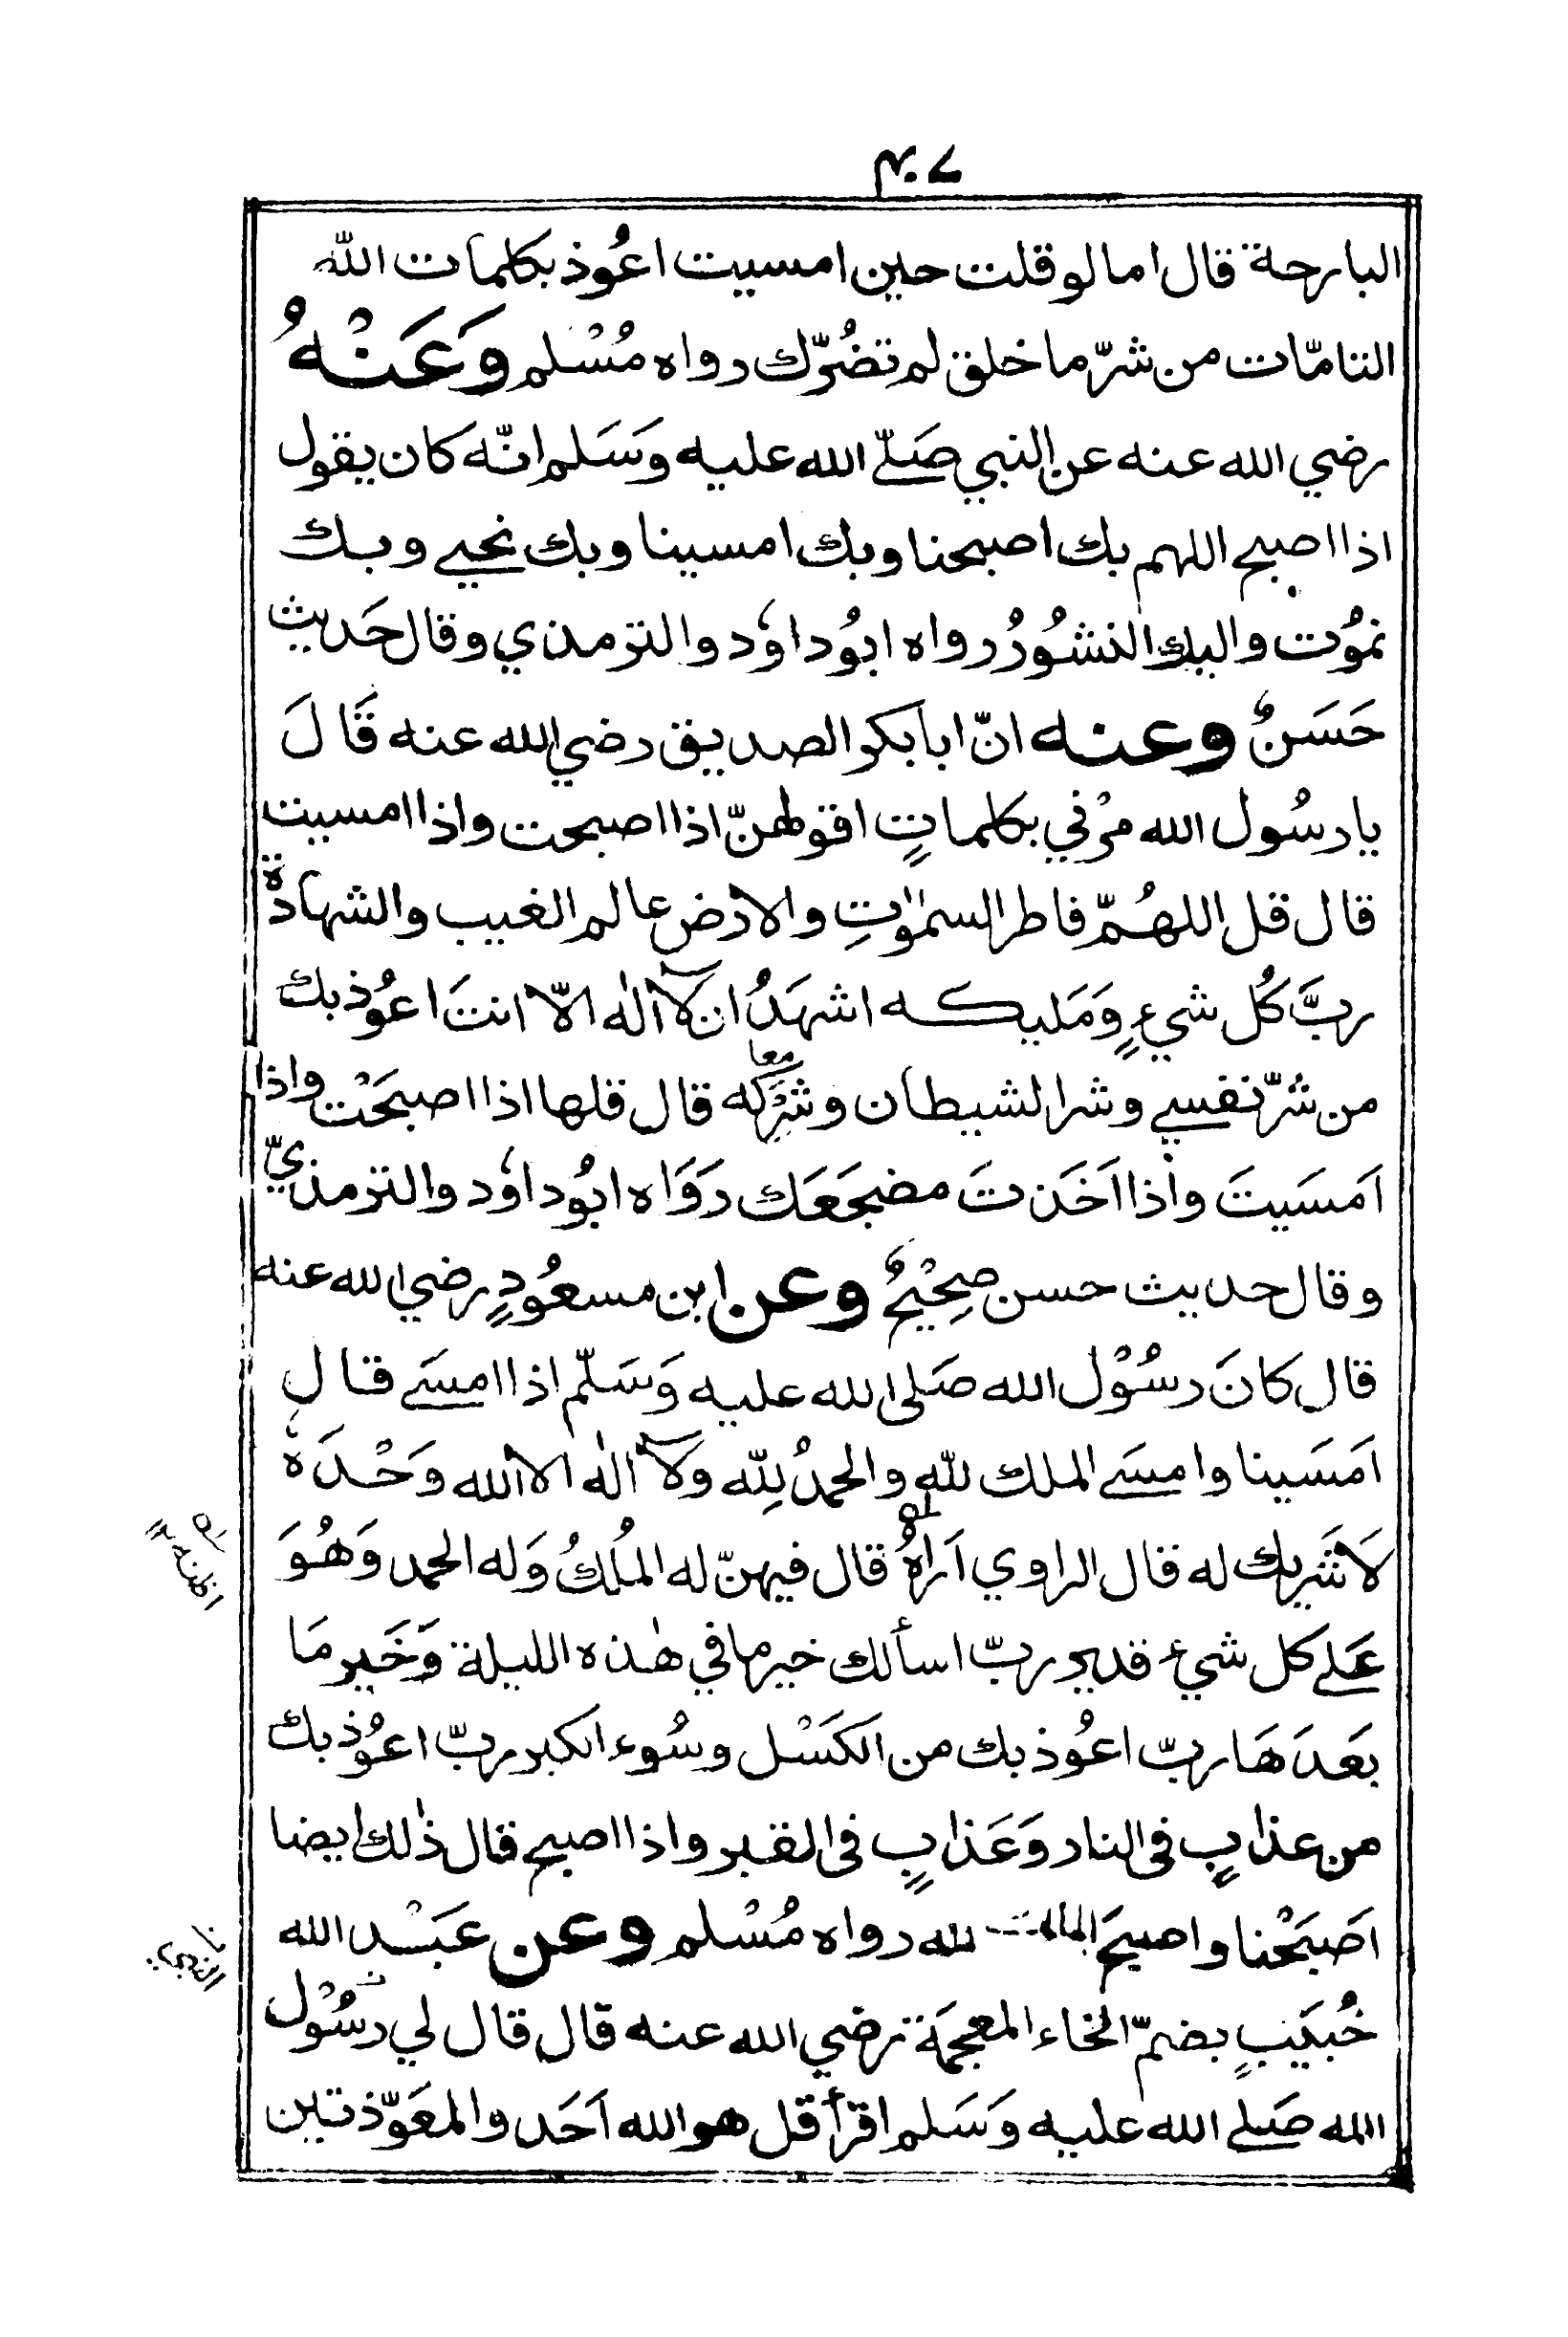 ۳۰۷
البارحة قال اما لو قلت حين امسيت اعُوذ بكلمات اللّه
التامّات من شرّ ما خلق لم تضُرّك رواه مُسْلم وَعَنْهُ
رضي الله عنه عن النبي صَلّے الله عليه وَسَلم انّه كان يقول
اذا اصبح اللهم بك اصبحنا وبك امسينا وبك نحيے وبك
نموُت واليك النشُورُ رواه ابوُ داوٗد والترمذي وقال حَديث
حَسَنٌ وعنه انّ ابا بكر الصديق رضي الله عنه قَالَ
يا رسُول الله مرْني بكلماتٍ اقولهنّ اذا اصبحت واذا امسيت
قال قل اللهُمّ فاطر السمٰوٰتِ والارض عالم الغيب والشهادة
ربَّ كُل شيءٍ وَمَليكه اشهَدُ ان لآ الٰه الّا انتَ اعوُذ بك
من شُرّ نفسے وشر الشيطان وشركه معا قال قلها اذا اصبحَتْ واذا
اَمسَيتَ واذا اَخَذتَ مضجَعَك رَوَاه ابوُ داوٗد والترمذيّ
وقال حديث حسن صِحِيْحٌ وعن ابن مسعُودٍ رضي الله عنه
قال كانَ رسُوْل الله صَلى الله عليه وَسَلّم اذا امسَے قال
اَمسَينا وامسَے الملك للّه والحمدُ لِلّه ولآ الٰه الا الله وَحْدَهٗ
لَا شَريك له قال الراوي اَراهُ له قال فيهنّ له المُلكُ وَله الحمد وَهُوَ
عَلے كل شيء قدير ربّ اسألك خير ما في هٰذه الليلة وَخَير مَا
بعَدَهَا ربّ اعوُذ بك من الكَسَْل وسُوء الكبر ربّ اعوُذ بك
من عذابٍ فى النار وَعَذابٍ فى القبر واذا اصبح قال ذٰلك ايضا
اَصبَحْنا واصبحَ الملك لله رواه مُسْلم وعن عَبْد الله
خُبَيبٍ بضمّ الخاء المعجمة رضي الله عنه قال قال لي رسُوْل
الله صَلے الله عليه وَسَلم اقرأ قل هو الله اَحَد والمعَوّذتين
له
اظنه ١٢